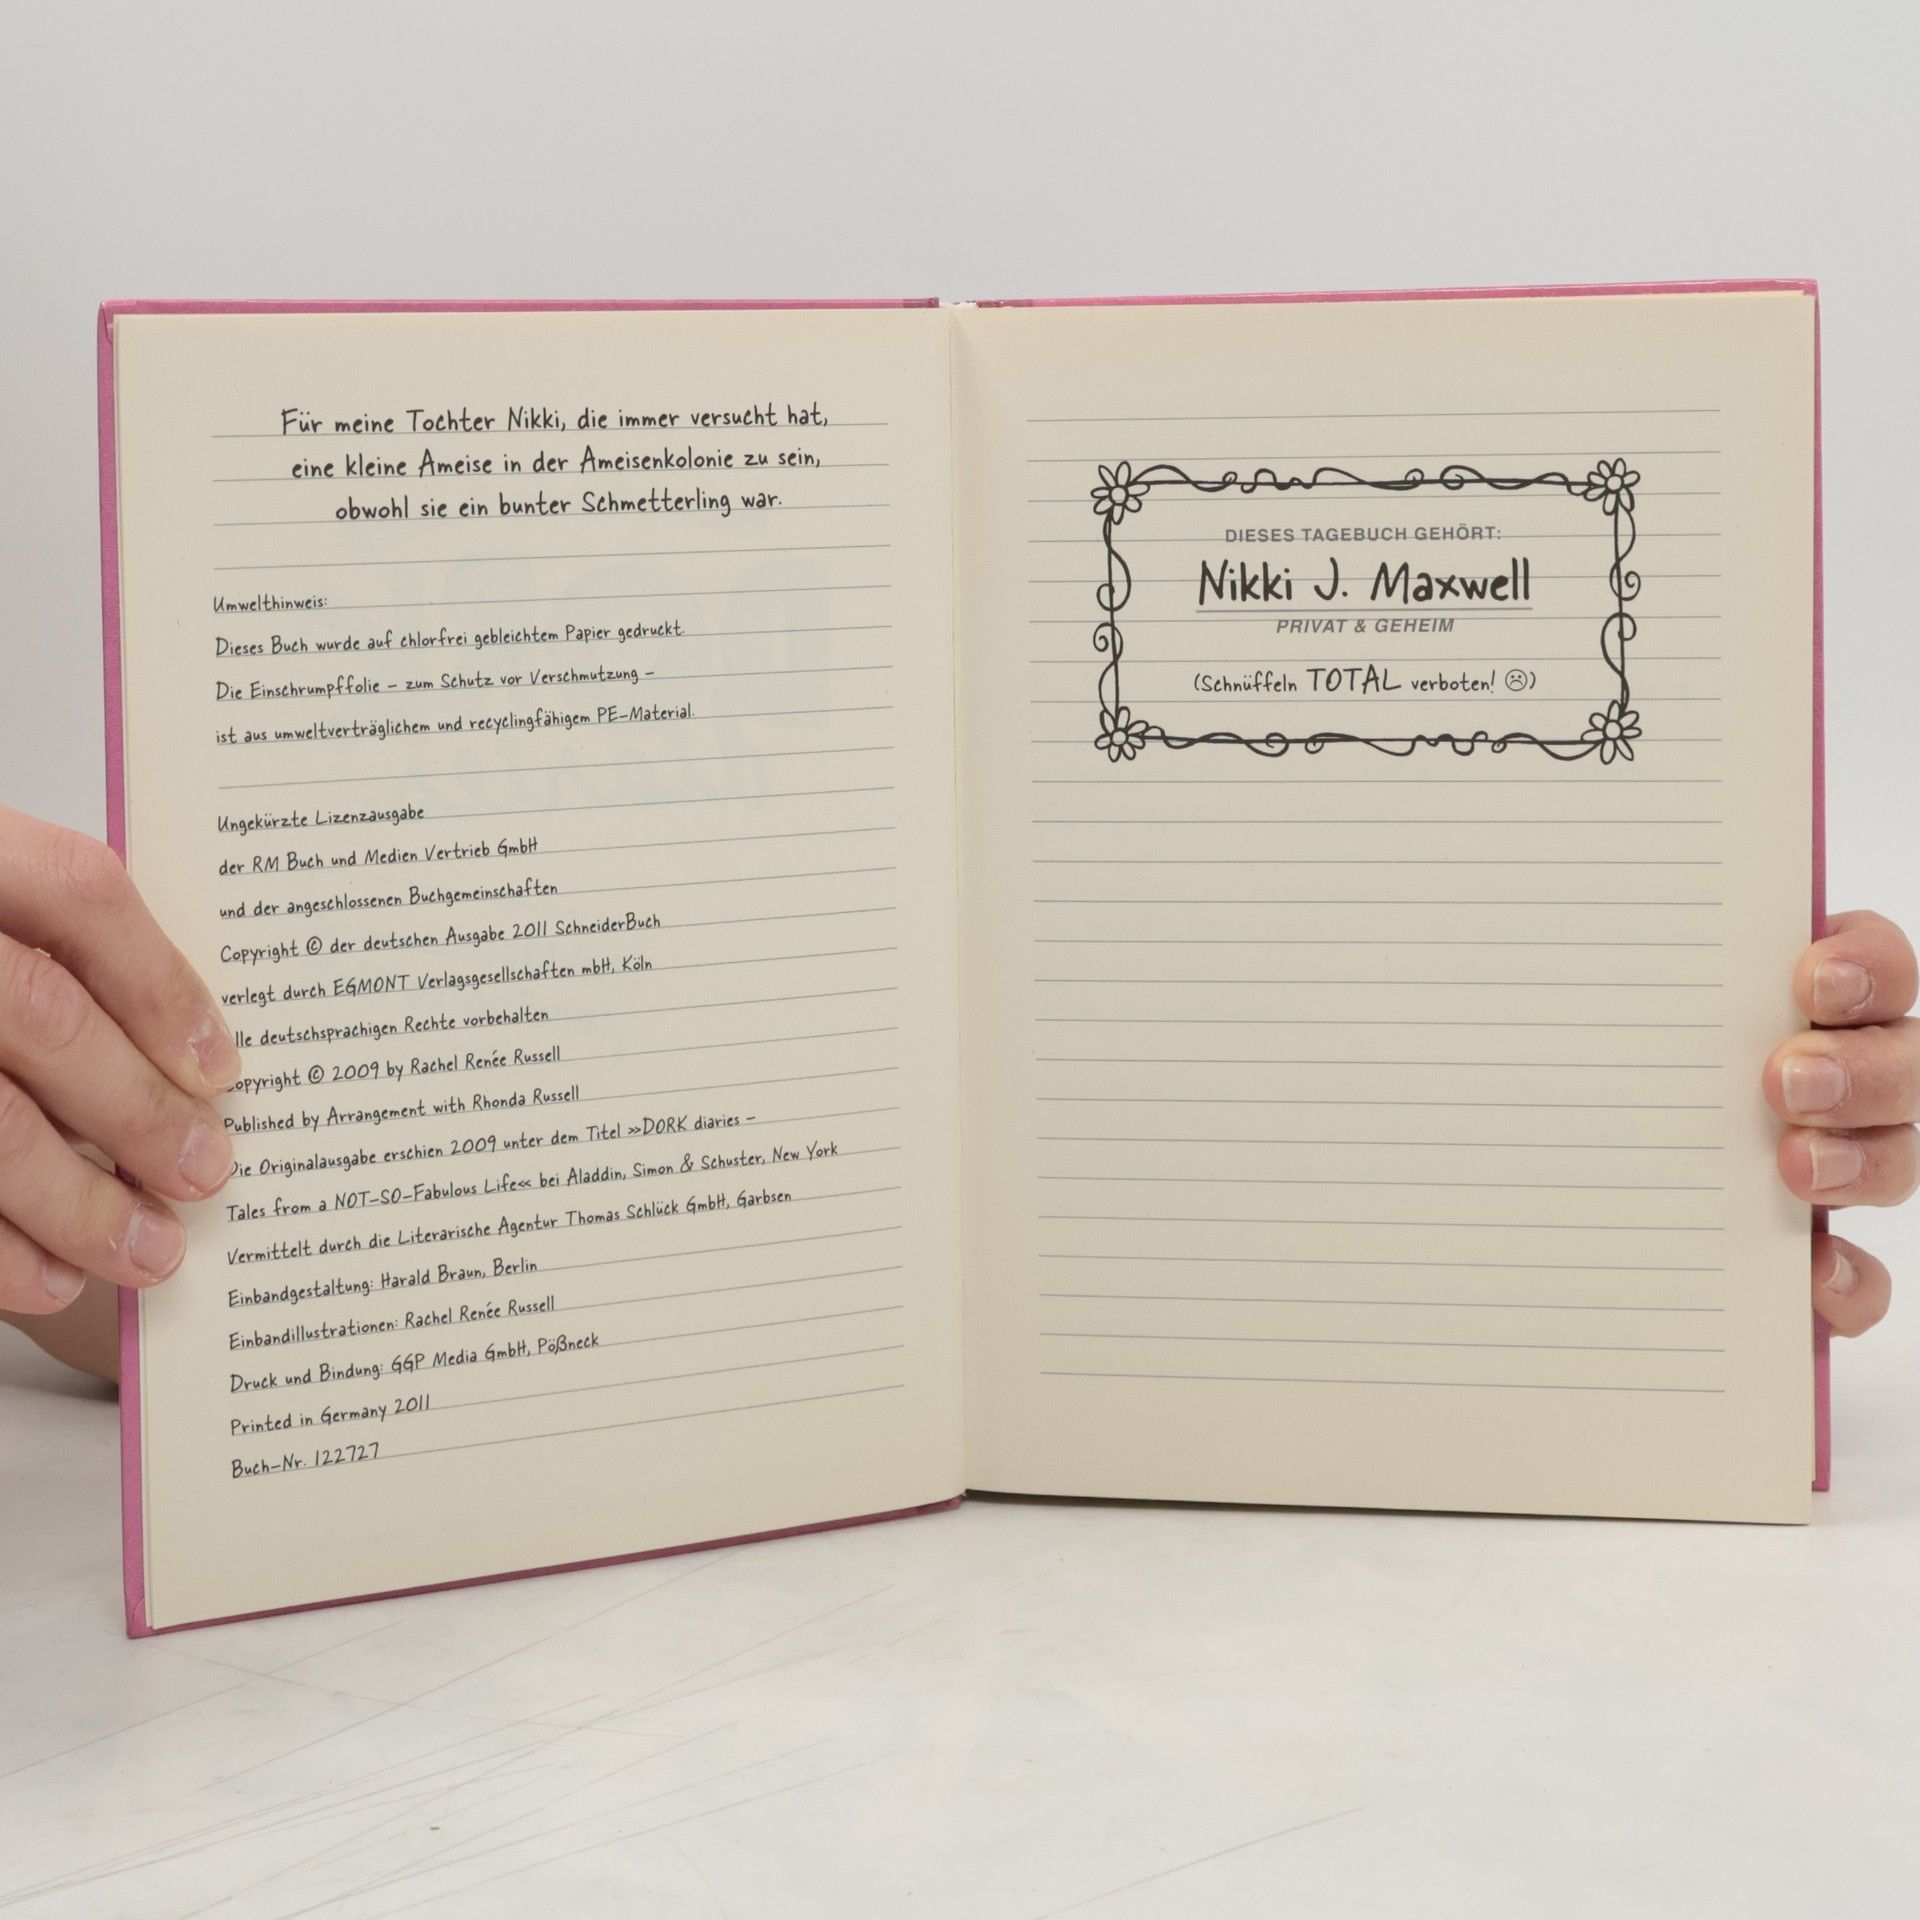 Für meine Tochter Nikki, die immer versucht hat,
eine kleine Ameise in der Ameisenkolonie zu sein,
obwohl sie ein bunter Schmetterling war.
Umwelthinweis:
Dieses Buch wurde auf chlorfrei gebleichtem Papier gedruckt.
Die Einschrumpffolie – zum Schutz vor Verschmutzung –
ist aus umweltverträglichem und recyclingfähigem PE-Material.
Ungekürzte Lizenzausgabe
der RM Buch und Medien Vertrieb GmbH
und der angeschlossenen Buchgemeinschaften
Copyright © der deutschen Ausgabe 2011 SchneiderBuch
verlegt durch EGMONT Verlagsgesellschaften mbH, Köln
lle deutschsprachigen Rechte vorbehalten
opyright © 2009 by Rachel Renée Russell
Published by Arrangement with Rhonda Russell
Die Originalausgabe erschien 2009 unter dem Titel »DORK diaries –
Tales from a NOT-SO-Fabulous Life« bei Aladdin, Simon & Schuster, New York
Vermittelt durch die Literarische Agentur Thomas Schlück GmbH, Garbsen
Einbandgestaltung: Harald Braun, Berlin
Einbandillustrationen: Rachel Renée Russell
Druck und Bindung: GGP Media GmbH, Pößneck
Printed in Germany 2011
Buch-Nr. 122727
DIESES TAGEBUCH GEHÖRT:
Nikki J. Maxwell
PRIVAT & GEHEIM
(Schnüffeln TOTAL verboten! ☹)